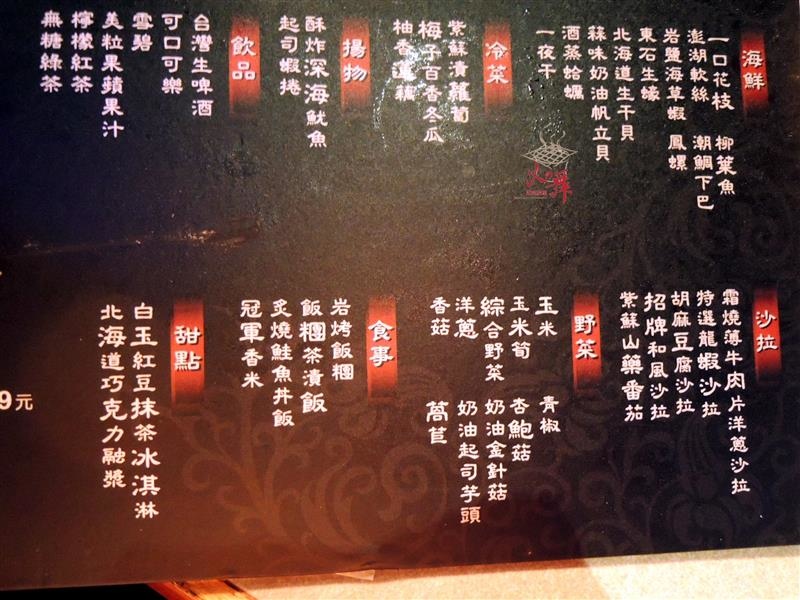 海鮮
一口花枝 柳葉魚
澎湖軟絲 潮鯛下巴
岩鹽海草蝦 鳳螺
東石生蠔
北海道生干貝
蒜味奶油帆立貝
酒蒸蛤蠣
一夜干
冷菜
紫蘇漬蘿蔔
梅子百香冬瓜
柚香蓮藕
揚物
酥炸深海魷魚
起司蝦捲
飲品
台灣生啤酒
可口可樂
雪碧
美粒果蘋果汁
檸檬紅茶
無糖綠茶
沙拉
霜燒薄牛肉片洋蔥沙拉
特選龍蝦沙拉
胡麻豆腐沙拉
招牌和風沙拉
紫蘇山藥番茄
野菜
玉米 青椒
玉米筍 杏鮑菇
綜合野菜 奶油金針菇
洋蔥 奶油起司芋頭
香菇 萵苣
食事
岩烤飯糰
飯糰茶漬飯
炙燒鮭魚丼飯
冠軍香米
甜點
白玉紅豆抹茶冰淇淋
北海道巧克力融漿
9元